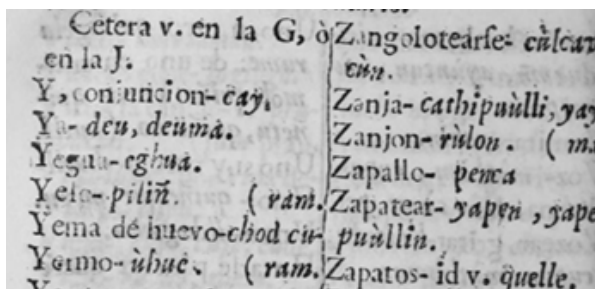 Cetera v. en la G, ò
en la J.
Y, conjuncion- cay.
Ya- deu, deuma.
Yegua- eghua.
Yelo- piliñ. ( ram.
Yema de huevo- chod cu-
Yermo- ùhue. ( ram.
Zangolotearse- cùlcar
cùn.
Zanja- cathipuùlli, yap
Zanjon- rùlon. ( ma
Zapallo- penca
Zapatear- yapen, yape
puùllin.
Zapatos- id v. quelle.